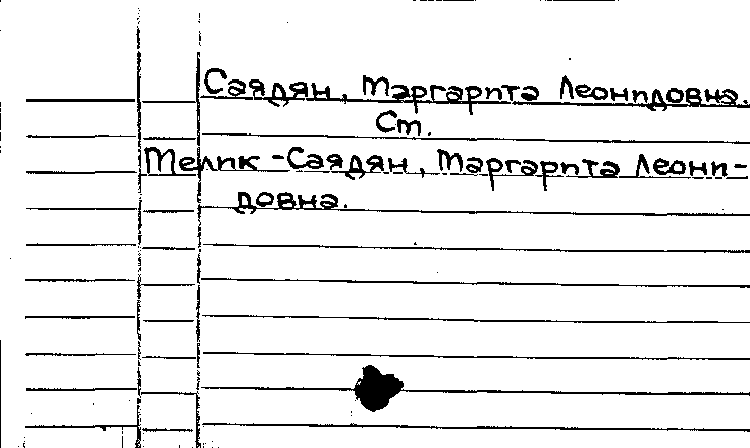 Саядян, Маргарита Леонидовна.
Ст.
Мелик-Саядян, Маргарита Леони-
довна.